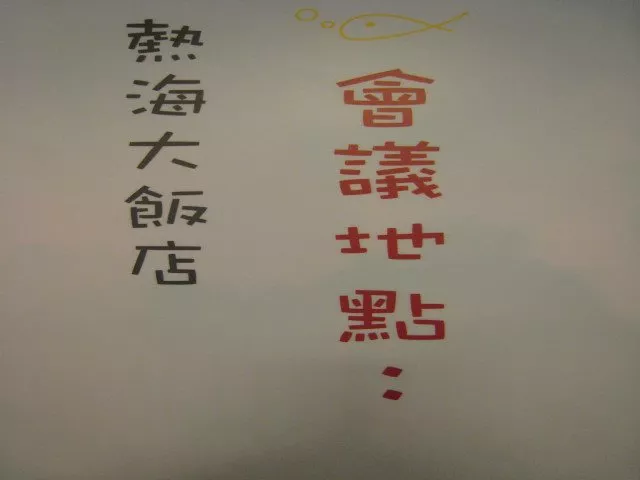 會議地點：
熱海大飯店